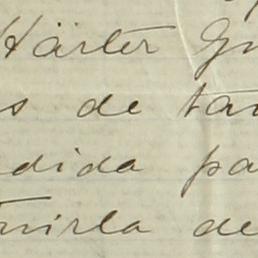 Härter Gu
s de tan
dida pa
uirla de